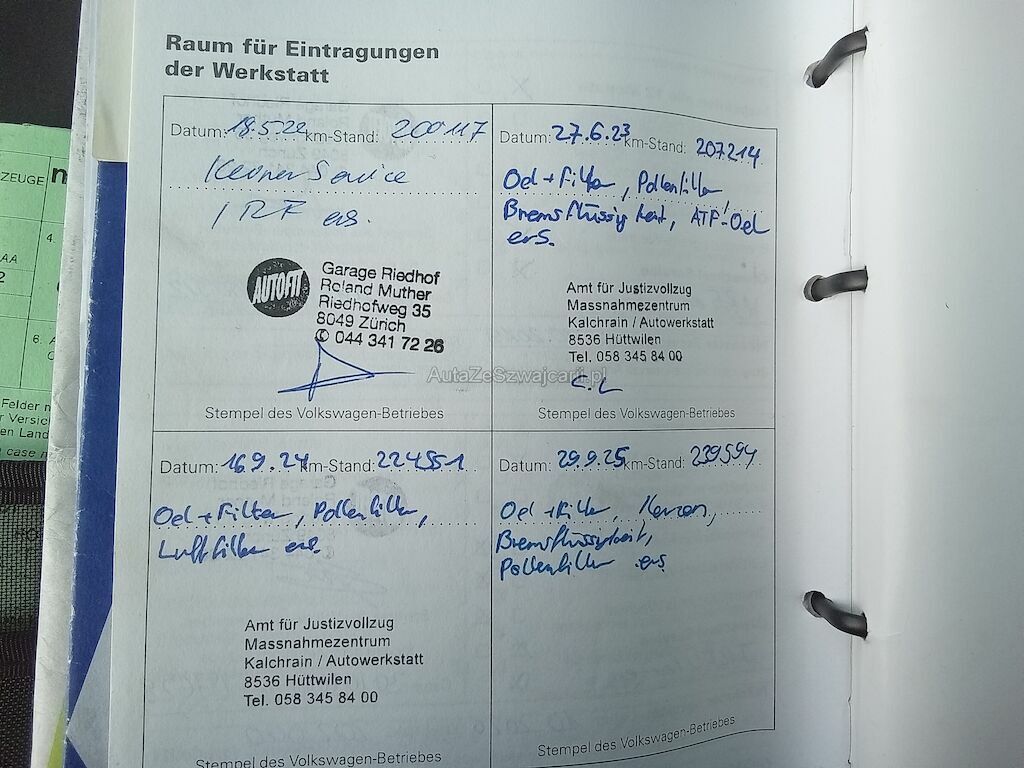 Raum für Eintragungen
der Werkstatt
Datum: 18.5.22 km-Stand: 200117
Service
ers.
AUTOFIT
Garage Riedhof
Roland Muther
Riedhofweg 35
8049 Zürich
✆ 044 341 72 26
Stempel des Volkswagen-Betriebes
Datum: 27.6.23 km-Stand: 207214
Oel + Filter, Pollenfilter
Bremsflüssigkeit, ATF-Oel
ers.
Amt für Justizvollzug
Massnahmezentrum
Kalchrain / Autowerkstatt
8536 Hüttwilen
Tel. 058 345 84 00
C.L
Stempel des Volkswagen-Betriebes
AutaZeSzwajcarii.pl
Datum: 16 9. 24 km-Stand: 224551
Oel + Filter, Pollenfilter,
Luftfilter ers.
Amt für Justizvollzug
Massnahmezentrum
Kalchrain / Autowerkstatt
8536 Hüttwilen
Tel. 058 345 84 00
Stempel des Volkswagen-Betriebes
Datum: 29.9.25 km-Stand: 239594
Oel + Filter, Kerzen,
Bremsflüssigkeit,
Pollenfilter ers
Stempel des Volkswagen-Betriebes
ZEUGE
4.
AA
2
6.
Felder
en Land
case